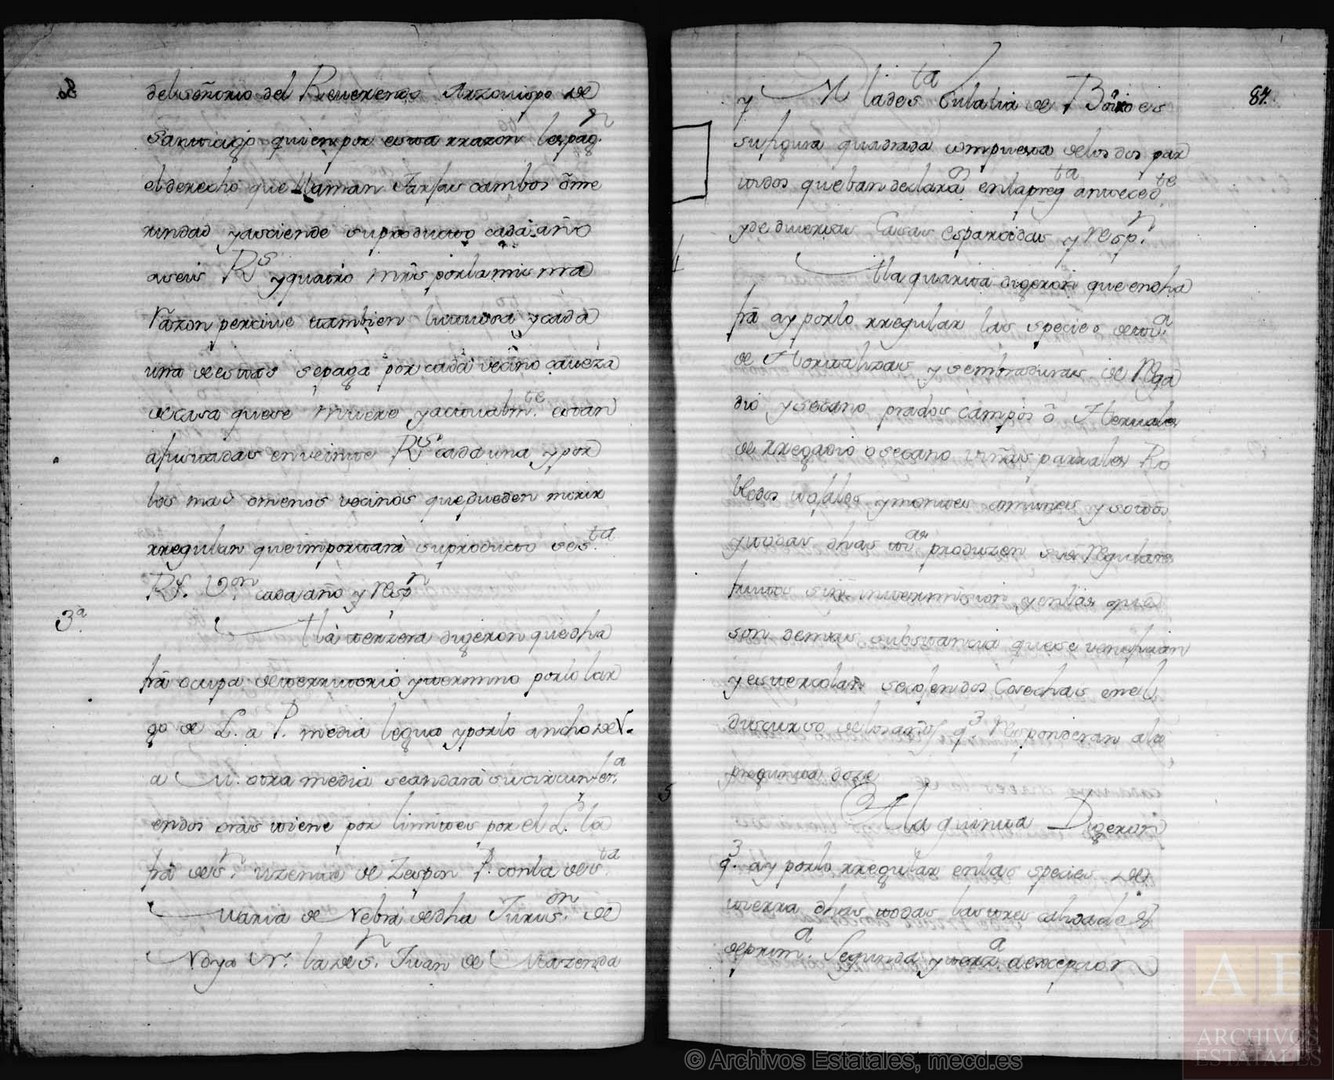 del señorio del Reverendo Arzovispo de
Santiago quien por esta rrazon le pag.n
el derecho que llaman Jarfas cambos ôme
rindad y asciende su producto cada año
a seis R.s y quatro mrs por la misma
rázon percive tambien luctuosa y cada
una de estas se paga por cada vecino caveza
de casa que se muere y actualm.te estan
afustadas en veinte R.s cada una y por
los mas omenos vecinos que pueden morir
rregulan que importará su producto ses.ta
R.s V.on cada año y resp.n
3.a
A la terzera digeron que dha
frâ ocupa de territorio y termino por lo lar
go de L. a P. media legua y por lo ancho de N.
a M. otra media
endos oras tiene por limites por el L. la
frâ de s.n Vizenzo de Zespon P. con la de s.ta
Maria de Nebra de dha Juris.on de
Noya N. la de s.n Juan de Mazenda
84.
y M. la de s.ta Eulalia de Boiro es
su figura quadrada compuesta de los dos par
tidos que ban declarâ.s en la preg.ta anteced.te
y de diversas Casas esparcidas y resp.n
4
A la quarta digeron que en dha
frâ ay por lo rregular las especies de tra
de Hortalizas y sembraduras de Rega
dio y secano prados campos ô Herbales
de rregadio o secano viñas parrales Ro
bledos y montes comunes y sotos
y todas dhas tras produzen sus regulares
frutos sin intermision y en las que
son de mas substancia que se venefician
y estercolan se cojen dos Cosechas en el
discurso de los años q.e responderan a la
pregunta doze
5
A la quinta Digeron
q.e ay por lo rregular en las species de
tierra dhas todas las tres calidades
de prim.a Segunda y terz.a a excepcion
© Archivos Estatales, mecd.es
AE
ARCHIVOS
ESTATALES